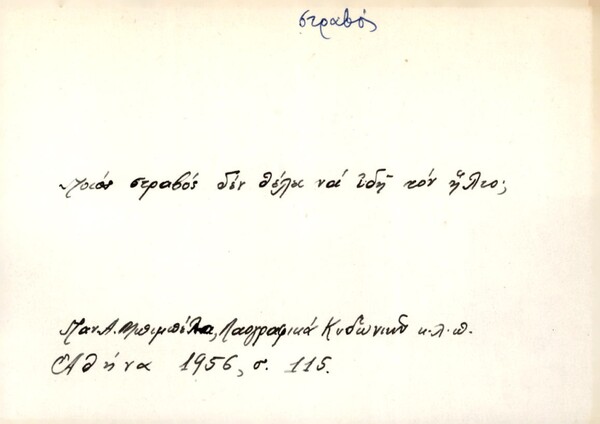 στραβός
Ποιός στραβός δέν θέλει νά ἰδῆ τόν ἥλιο;
Παν. Λ. Μπιμπέλα, Λαογραφικά Κυδωνιῶν κ.λ.π.
Ἀθήνα 1956, σ. 115.